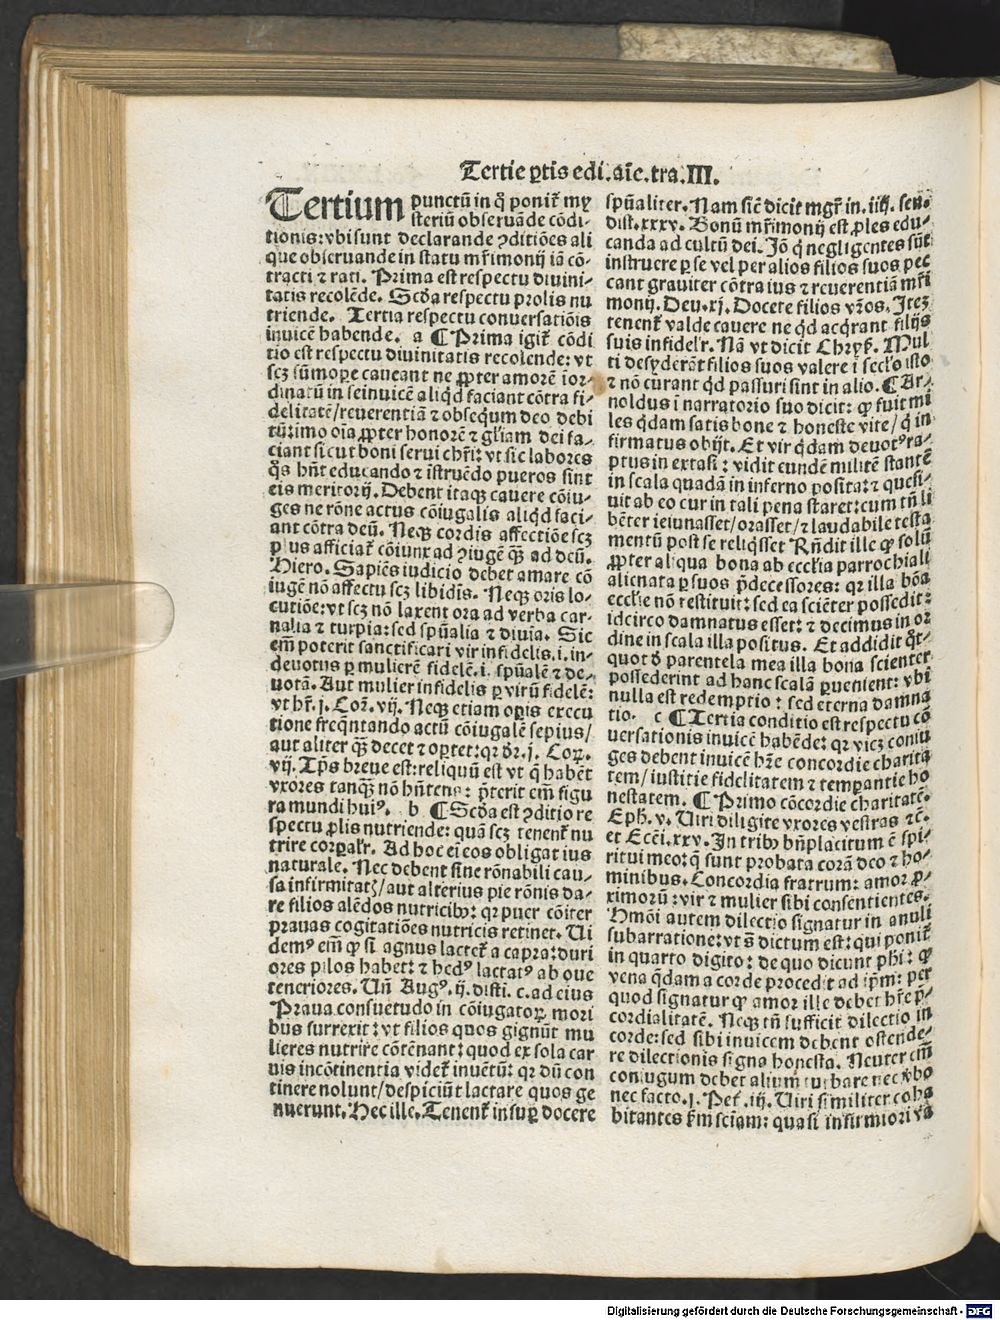 Tertie ꝑtis edi.aīe.tra.III.
Tertium punctū in q̊ poniť my
steriū obseruāde cōdi-
tionis: vbi sunt declarande ꝯditiōes ali
que obseruande in statu mr̄imonij iā cō-
tracti ⁊ rati. Prima est respectu diuini-
tatis recolēde. Scd̄a respectu prolis nu
triende. Tertia respectu conuersatiōis
inuicē habende. a ¶ Prima igiť cōdi
tio est respectu diuinitatis recolende: vt
scꝫ sūmoꝑe caueant ne ꝓpter amorē ior-
dinatū in seinuicē aliqd̄ faciant cōtra fi-
delitatē/reuerentiā ⁊ obsequm deo debi
tū: imo oīa ꝓpter honorē ⁊ gl̄iam dei fa-
ciant sicut boni serui chr̄i: vt sic labores
q̊s hn̄t educando ⁊ īstruēdo pueros sint
eis meritorij. Debent itaqꝫ cauere cōiu-
ges ne rōne actus cōiugalis aliqd̄ faci-
ant cōtra deū. Neqꝫ cordis affectiōe scꝫ
pl̄us afficiať cōiunx ad ꝯiugē qꝫ̄ ad deū.
Hiero. Sapiēs iudicio debet amare cō
iugē nō affectu scꝫ libidis. Neqꝫ oris lo-
cutiōe: vt scꝫ nō laxent ora ad verba car-
nalia ⁊ turpia: sed spūalia ⁊ diuīa. Sic
em̄ poterit sanctificari vir infidelis .i. in-
deuotus ꝑ mulierē fidelē .i. spūalē ⁊ de-
uotā. Aut mulier infidelis ꝑ virū fidelē:
vt hr̄. j. Cor̄. vij. Neqꝫ etiam oꝑis execu
tione freqn̄tando actū cōiugalē sepius/
aut aliter qꝫ̄ decet ⁊ oꝑtet: qr d̄r. j. Coꝝ.
vij. Tp̄s breue est: reliquū est vt q̄ habēt
vxores tanqꝫ̄ nō hn̄tes: p̄terit em̄ figu
ra mundi huiꝰ. b ¶ Scd̄a est ꝯditio re
spectu ꝓlis nutriende: quā scꝫ tenenť nu
trire corꝑalr̄. Ad hoc ei eos obligat ius
naturale. Nec debent sine rōnabili cau-
sa infirmitatꝭ/aut alterius pie rōnis da-
re filios alēdos nutricibꝰ: qr puer cōiter
prauas cogitatiōes nutricis retinet. Ui
demꝰ em̄ ꝙ si agnus lacteť a capra: duri
ores pilos habet: ⁊ hedꝰ lactatꝰ ab oue
teneriores. Un̄ Augꝰ. ij. disti. c. ad eius
Praua consuetudo in cōiugatoꝝ mori
bus surrexit: vt filios quos gignūt mu
lieres nutrire cōtēnant: quod ex sola car
nis incōtinentia videť inuētū: qr dū con
tinere nolunt/despiciūt lactare quos ge
nuerunt. Hec ille. Tenenť insuꝑ docere
spūaliter. Nam sic̄ dicit mgr̄ in .iiij. sen.
dist. xxxv. Bonū mr̄imonij est ꝓles edu-
canda ad cultū dei. Jō q̄ negligentes sūt
instruere ꝑ se vel per alios filios suos pec
cant grauiter cōtra ius ⁊ reuerentiā mr̄i
monij. Deu. xj. Docete filios vr̄os. Iteꝫ
tenenť valde cauere ne qd̄ acqrant filijs
suis infidelr̄. Nā vt dicit Chrys̄. Mul
ti desyderāt filios suos valere ī seclo isto
⁊ nō curant qd̄ passuri sint in alio. ¶ Ar-
noldus ī narratorio suo dicit: ꝙ fuit mi
les qdam satis bone ⁊ honeste vite/ q̄ in
firmatus obijt. Et vir qdam deuotꝰ ra-
ptus in extasi: vidit eundē militē stantē
in scala quadā in inferno posita: ⁊ quesi-
uit ab eo cur in tali pena staret: cum tn̄ li
bēter ieiunasset/orasset/⁊ laudabile testa
mentū post se reliqsset Rn̄dit ille ꝙ solū
ꝓpter aliqua bona ab eccl̄ia parrochiali
alienata ꝑ suos p̄decessores: qr illa bōa
eccl̄ie nō restituit: sed ea sciēter possedit:
idcirco damnatus esset: ⁊ decimus in or
dine in scala illa positus. Et addidit qt̄-
quot d̄ parentela mea illa bona scienter
possederint ad hanc scalā ꝑuenient: vbi
nulla est redemptio: sed eterna damna
tio. c ¶ Tertia conditio est respectu cō
uersationis inuicē habēde: qr vicꝫ coniu
ges debent inuicē hr̄e concordie charita
tem/iustitie fidelitatem ⁊ temperantie ho
nestatem. ¶ Primo cōcordie charitatē.
Eph. v. Uiri diligite vxores vestras ⁊c̄.
et Ecci. xxv. In tribꝰ bn̄placitum ē spi-
ritui meo: q̄ sunt probata corā deo ⁊ ho-
minibus. Concordia fratrum: amor ꝓ-
ximorū: vir ⁊ mulier sibi consentientes.
Hmōi autem dilectio signatur in anuli
subarratione: vt s̄ dictum est: qui poniť
in quarto digito: de quo dicunt phi: ꝙ
vena qdam a corde procedit ad ip̄m: per
quod signatur ꝙ amor ille debet hr̄e p̄-
cordialitatē. Neqꝫ tn̄ sufficit dilectio in
corde: sed sibi inuicem debent ostende-
re dilectionis signa honesta. Neuter em̄
coniugum debet alium turbare nec v̄bo
nec facto. j. Peť. iij. Uiri similiter coha
bitantes s̄m sciam: quasi infirmiori va
Digitalisierung gefördert durch die Deutsche Forschungsgemeinschaft - DFG